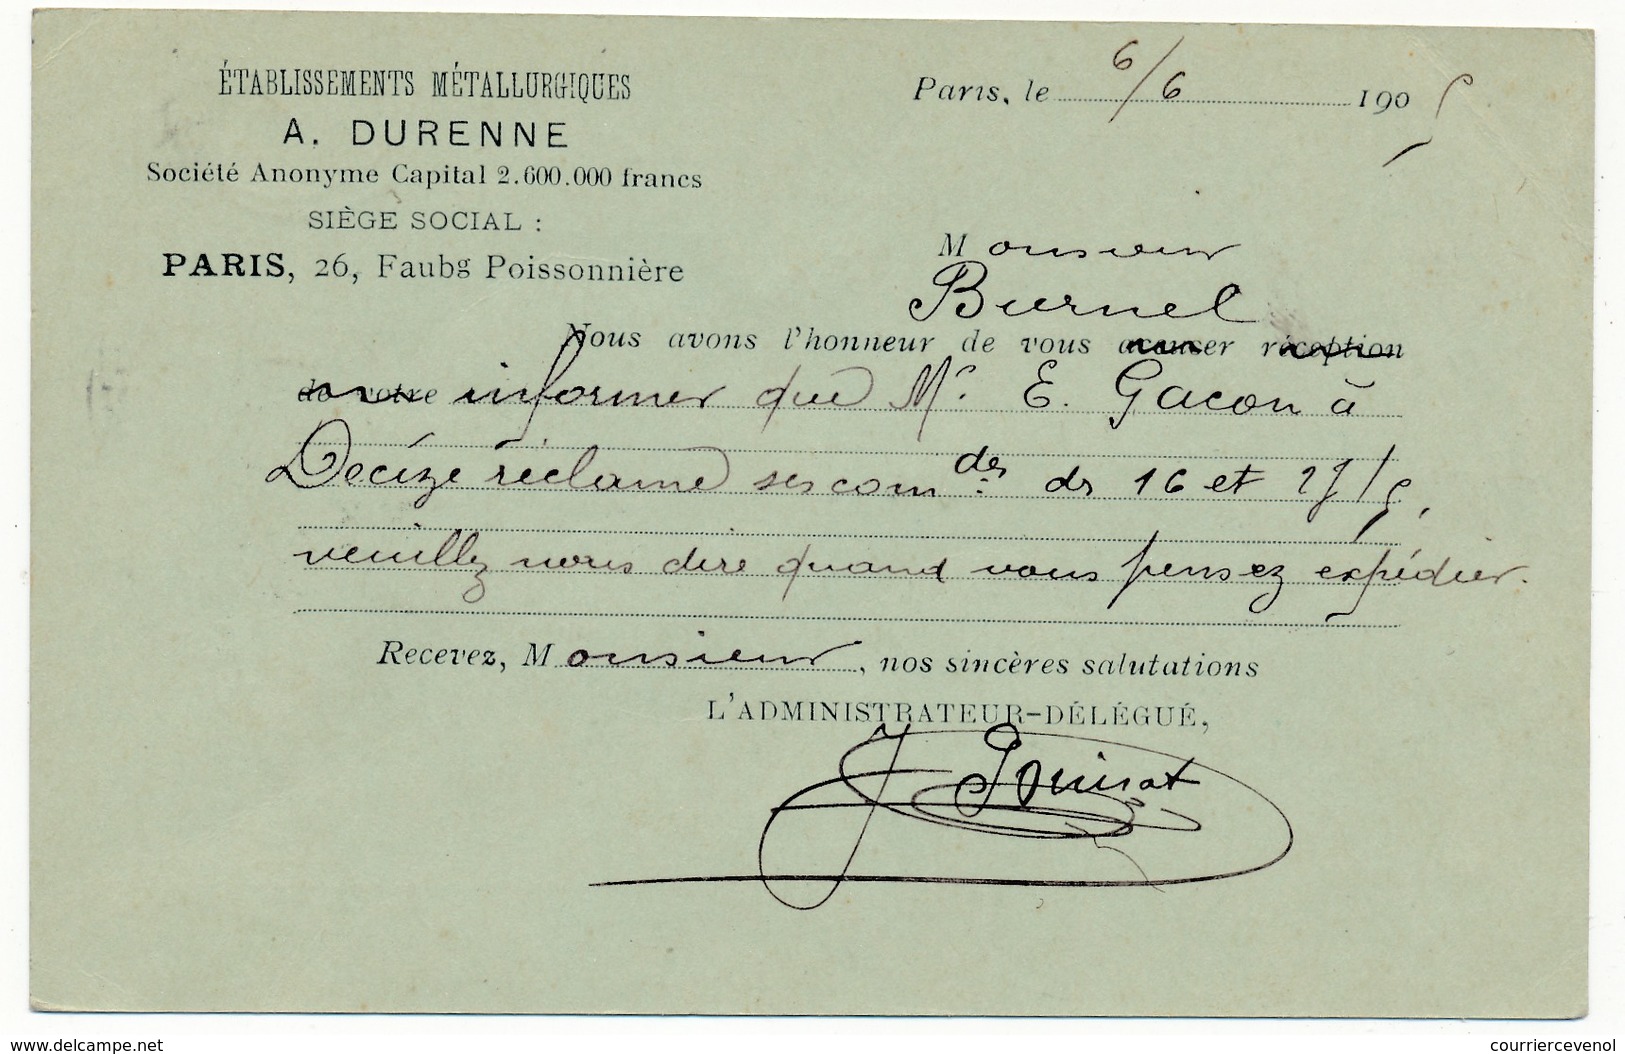 ÉTABLISSEMENTS MÉTALLURGIQUES
A. DURENNE
Société Anonyme Capital 2.600.000 francs
SIÈGE SOCIAL :
PARIS, 26, Faubg Poissonnière
Paris, le 6/6 1905
Monsieur
Burnel
Nous avons l'honneur de vous accuser réception
de votre informer que Mr. E. Gacon à
Decize réclame ses com des de 16 et 27/5,
veuillez nous dire quand vous pensez expédier.
Recevez, Monsieur, nos sincères salutations
L'ADMINISTRATEUR-DÉLÉGUÉ,
delcampe.net
courriercevenol